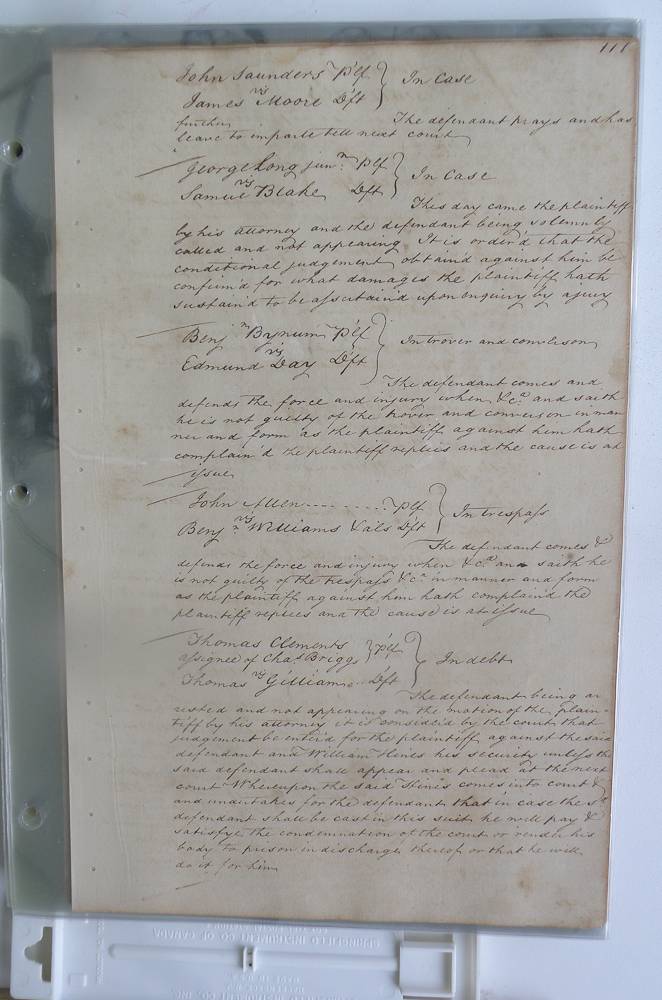 111
John Saunders Plf
vs
James Moore Deft
In Case
The defendant prays and has
further
leave to imparle till next court
George Long junr Plf
vs
Samuel Blake Deft
In Case
This day came the plaintiff
by his attorney and the defendant being solemnly
called and not appearing It is order'd that the
conditional judgement obtain'd against him be
confirm'd for what damages the plaintiff hath
sustain'd to be assertain'd upon enquiry by a jury
Benjn Bynum Plf
vs
Edmund Day Deft
In trover and conversion
The defendant comes and
defends the force and injury when &ca and saith
he is not guilty of the trover and conversion in man
ner and form as the plaintiff against him hath
complain'd the plaintiff replies and the cause is at
issue
John Allen Plf
vs
Benjn Williams & als Deft
In trespass
The defendant comes &
defends the force and injury when &ca and saith he
is not guilty of the trespass &ca in manner and form
as the plaintiff against him hath complain'd the
plaintiff replies and the cause is at issue
Thomas Clements
assignee of Chas Briggs Plf
vs
Thomas Gilliam Deft
In debt
The defendant being ar
rested and not appearing on the motion of the plain-
tiff by his attorney it is consider'd by the court that
judgement be enter'd for the plaintiff against the said
defendant and William Hines his security unless the
said defendant shall appear and plead at the next
court Whereupon the said Hines comes into court &
and undertakes for the defendant that in case the sd
defendant shall be cast in this suit he will pay &
satisfye the condemnation of the court or render his
body to prison in discharge thereof or that he will
do it for him
SPRINGFIELD INSTRUMENT CO. INC.
SPRINGFIELD INSTRUMENT CO. OF CANADA